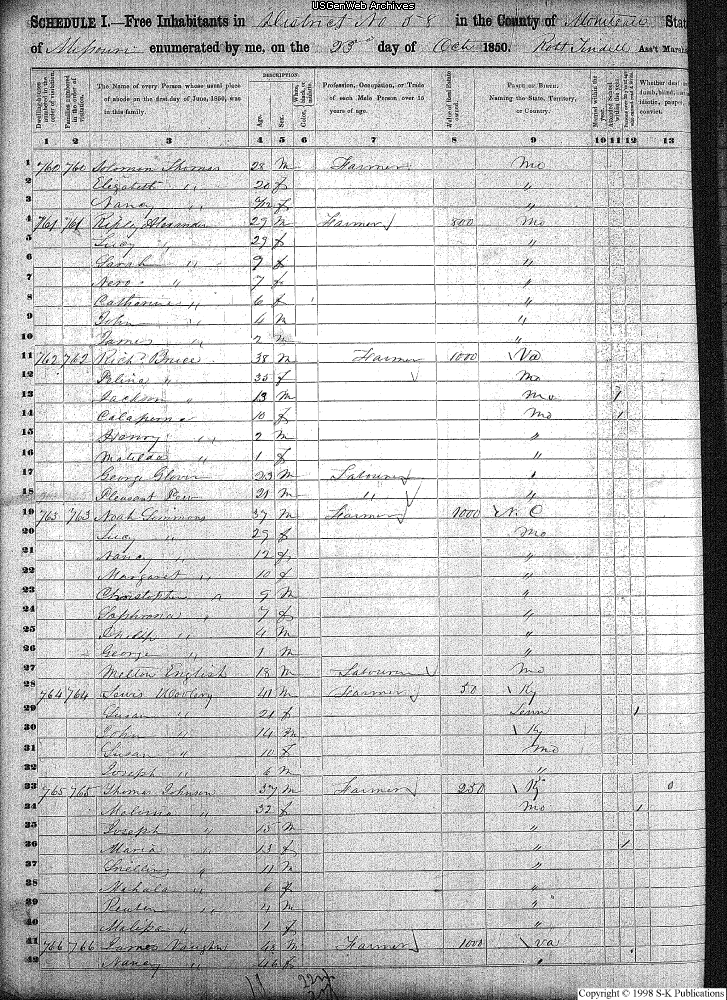 USGenWeb Archives
SCHEDULE I.—Free Inhabitants in District No 58 in the County of Moniteau State
of Missouri enumerated by me, on the 23d day of Oct 1850. Robt Tindell Ass't Marshal
DESCRIPTION.
Dwelling-houses numbered in the order of visitation.
Families numbered in the order of visitation.
The Name of every Person whose usual place of abode on the first day of June, 1850, was in this family.
Age.
Sex.
Color, White, black, or mulatto.
Profession, Occupation, or Trade of each Male Person over 15 years of age.
Value of Real Estate owned.
PLACE OF BIRTH. Naming the State, Territory, or Country.
Married within the year.
Attended School within the year.
Whether deaf
1 2 3 4 5 6 7 8 9 10 11 12 13
1 760 760 Solomon Thomas 28 M Farmer Mo
2 Elizabeth " 20 f "
3 Nancy " 3/12 f "
4 761 761 Riply Alexander 29 M Farmer 800 Mo
5 Lucy " 29 f "
6 Sarah " 9 f "
7 " 7 f "
8 Catharine " 6 f "
9 John " 4 M "
10 James " 2 M "
11 762 762 Richd Bruce 38 M Farmer 1000 Va
12 " 35 f Mo
13 Jackson " 13 M Mo 1
14 10 f Mo 1
15 Henry " 2 M "
16 Matilda " 1 f "
17 George Glover 23 M Labourer "
18 Pleasant 21 M " "
19 763 763 Noah Simmons 37 M Farmer 1000 N. C
20 Lucy " 29 f Mo
21 Nancy " 12 f "
22 Margaret " 10 f "
23 Christopher " 9 M "
24 Saphrona " 7 f "
25 " 4 M "
26 George " 1 M "
27 Melton English 18 M Labourer Mo
28 764 764 Lewis 41 M Farmer 50 Ky
29 Susan " 21 f Tenn 1
30 John " 14 M Ky
31 Susan " 10 f Mo
32 Joseph " 6 M "
33 765 765 Thomas Johnson 37 M Farmer 250 Ky 0
34 Malinda " 32 f Mo 1
35 Joseph " 15 M "
36 Maria " 13 f " 1
37 " 11 M "
38 Mahala " 6 f "
39 Reuben " 4 M "
40 Malissa " 1 f "
41 766 766 James Vaughn 48 M Farmer 1000 Va
42 Nancy " 46 f "
Copyright © 1998 S-K Publications